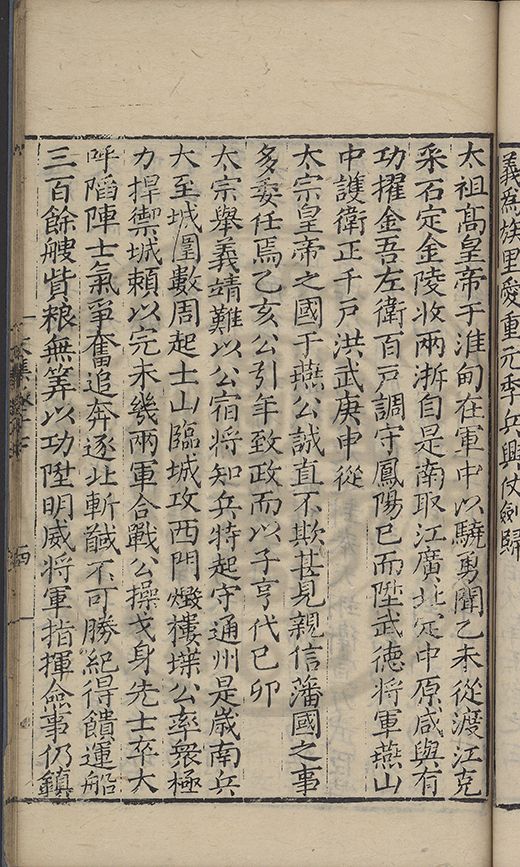 義爲族里愛重元季兵興仗劒歸
太祖髙皇帝于淮甸在軍中以驍勇聞乙未從渡江克
采石定金陵收兩浙自是南取江廣北定中原咸與有
功擢金吾左衛百戸調守鳳陽已而陞武德將軍燕山
中護衛正千戸洪武庚申從
太宗皇帝之國于燕公誠直不欺甚見親信藩國之事
多委任焉乙亥公引年致政而以子亨代己夘
太宗舉義靖難以公宿將知兵特起守通州是歳南兵
大至城圍數周起土山臨城攻西門燬樓堞公率衆極
力捍禦城賴以完未幾兩軍合戰公操戈身先士卒大
呼䧟陣士氣爭奮追奔逐北斬馘不可勝紀得饋運船
三百餘艘貲粮無筭以功陞明威將軍指揮僉事仍鎮